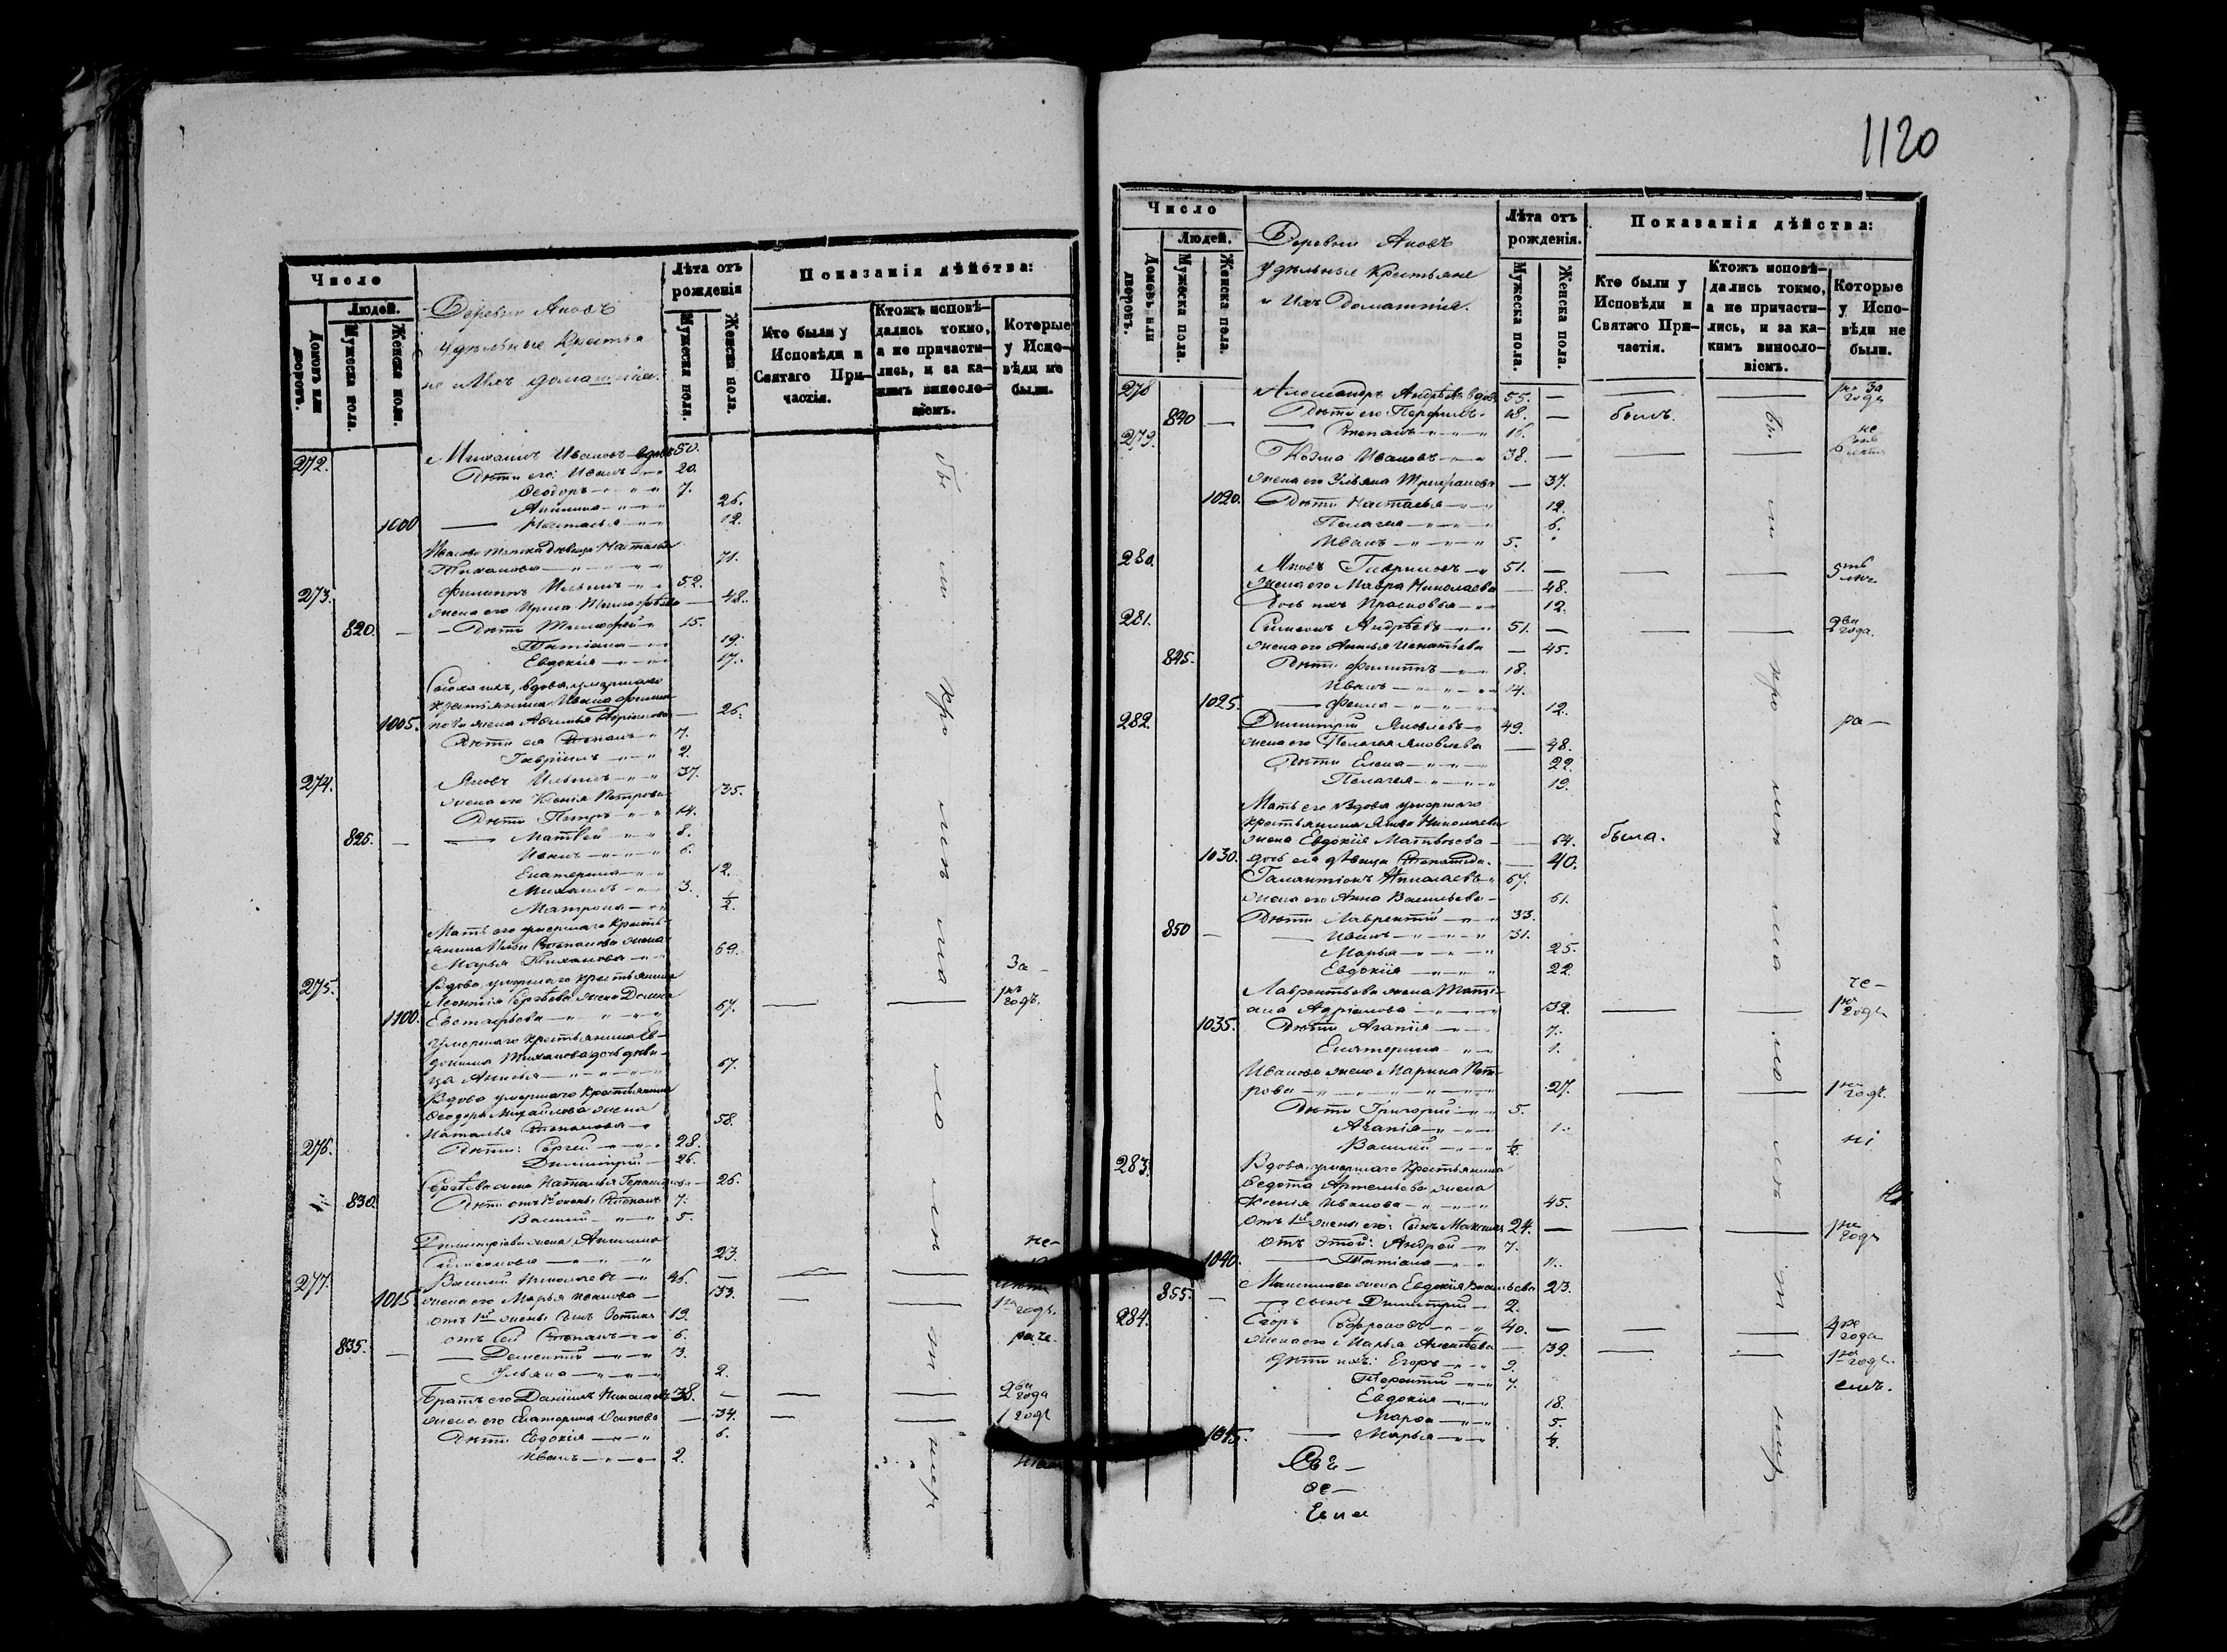 Число
Людей.
Домовъ или дворовъ.
Мужеска пола.
Женска пола.
Деревни Ановъ
Удѣльные Крестья
не и Ихъ домашнія.
Лѣта отъ рожденія
Мужеска пола.
Женска пола.
Показанія дѣйства:
Кто были у Исповѣди и Святаго Причастія.
Ктожъ исповѣдались токмо, а не причастились, и за какимъ винословіемъ.
Которые у Исповѣди не были.
272. Михаилъ Ивановъ вдовъ 50.
Дѣти его: Иванъ 20.
Ѳеодоръ 7.
26.
1000 Настасья 12.
Иванова тетка дѣвица Настасья
Тиханова 71.
273. Филиппъ Ильинъ 52.
жена его Ирина Тимоѳѣева 48.
820. Дѣти Тимоѳей 15.
Татіана 19.
Евдокія 17.
Сноха ихъ, вдова, умершаго
крестьянина Ивана Филип
1005. пова жена Адріанова 26.
Дѣти ея Степанъ 7.
Гавріилъ 2.
274. Яковъ Ильинъ 37.
жена его Ксенія Петрова 35.
Дѣти Петръ 14.
825. Матвѣй 8.
Иванъ 6.
Екатерина 12.
Михаилъ 3.
Матрона ½.
Мать его умершаго кресть-
янина Ильи Степанова жена
Марья Тиханова 69.
275. Вдова умершаго крестьянина
Леонтія Сергѣева жена Домна За
1100. Евстафьева 67. 1нъ годъ.
Умершаго крестьянина Ев-
докима Тиханова дочь дѣви-
ца Анисья 67.
Вдова умершаго крестьянина
Ѳеодора Михайлова жена
Наталья Степанова 58.
276. Дѣти: Сергѣй 28.
Димитрій 26.
Сергѣева жена Наталья 26.
830. Дѣти отъ 1й жены: Степанъ 7.
Василій 5.
Димитріева жена Акилина не-
Симеонова 23.
277. Василій Николаевъ 46.
1015. жена его Марья Иванова 33. 1нъ годъ.
отъ 1й жены сынъ Зотикъ 13.
отъ сей Степанъ 6. раче-
835. Дементій 3.
Ульяна 2.
Братъ его Даніилъ Николаевъ 38. 2ва года
жена его Екатерина Осипова 34. 1 годъ
Дѣти Евдокія 6.
Иванъ 2.
1120
Число
Людей.
Домовъ или дворовъ.
Мужеска пола.
Женска пола.
Деревни Ановъ
Удѣльные Крестьяне
и Ихъ Домашнія.
Лѣта отъ рожденія.
Мужеска пола.
Женска пола.
Показанія дѣйства:
Кто были у Исповѣди и Святаго Причастія.
Ктожъ исповѣдались токмо, а не причастились, и за какимъ винословіемъ.
Которые у Исповѣди не были.
278 Александръ Андрѣевъ вдовъ 55. 1нъ За года
840 Дѣти его Порфирій 18. былъ.
Степанъ 16. не
279. Козма Ивановъ 38.
жена его Ульяна Трифанова 37.
1020. Дѣти Настасья 12.
Пелагея 6.
Иванъ 5.
280. Яковъ Гавриловъ 51. 5ть лѣтъ
жена его Мавра Николаева 48.
Дочь ихъ Прасковья 12.
281. Симеонъ Андрѣевъ 51. 2ва года.
жена его Анисья Игнатьева 45.
845. Дѣти Филиппъ 18.
Иванъ 14.
1025. Фекла 12.
282. Димитрій Яковлевъ 49. ра-
жена его Пелагея Яковлева 48.
Дѣти Елена 22.
Пелагея 19.
Мать его вдова умершаго
крестьянина Якова Николаева
жена Евдокія Матвѣева 64. была.
1030. дочь ея дѣвица Степанида 40.
Галактіонъ Николаевъ 67.
жена его Анна Васильева 61.
Дѣти Лаврентій 33.
850 Иванъ 31.
Марья 25.
Евдокія 22.
Лаврентьева жена Таті- че-
ана Адріанова 32. 1нъ годъ
1035. Дѣти Агапія 7.
Екатерина 1.
Иванова жена Марина Пет-
рова 27. 1нъ годъ.
Дѣти Григорій 5.
Агапія 1.
Василій ½ ні
283. Вдова, умершаго крестьянина
Ѳедота Артемьева жена
Ксенія Иванова 45.
отъ 1й жены его: Сынъ Максимъ 24. 1нъ годъ
отъ этой: Андрей 7.
1040. Татіана 11.
Максимова жена Евдокія Васильева 23.
855. сынъ Димитрій 2.
284. Егоръ Сафроновъ 40. 4ре года
жена его Марья Алексѣева 39. 1нъ годъ.
Дѣти ихъ: Егоръ 9.
Терентій 7. емъ.
Евдокія 18.
Марѳа 5.
1045. Марья ½.